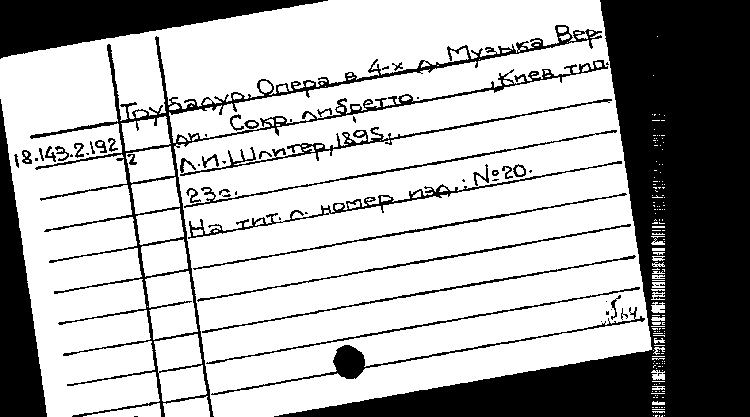 Трубадур. Опера в 4-х д. Музыка Вер-
ди. Сокр. либретто. , Киев, тип.
18.143.2.192
-2
Л.И. Шлитер, 1895,.
23с.
На тит. л. номер изд.: №20.